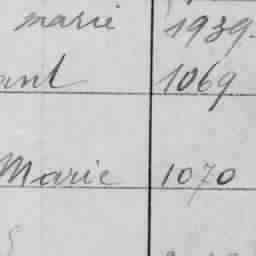 marie 1939.
ant 1069
Marie 1070